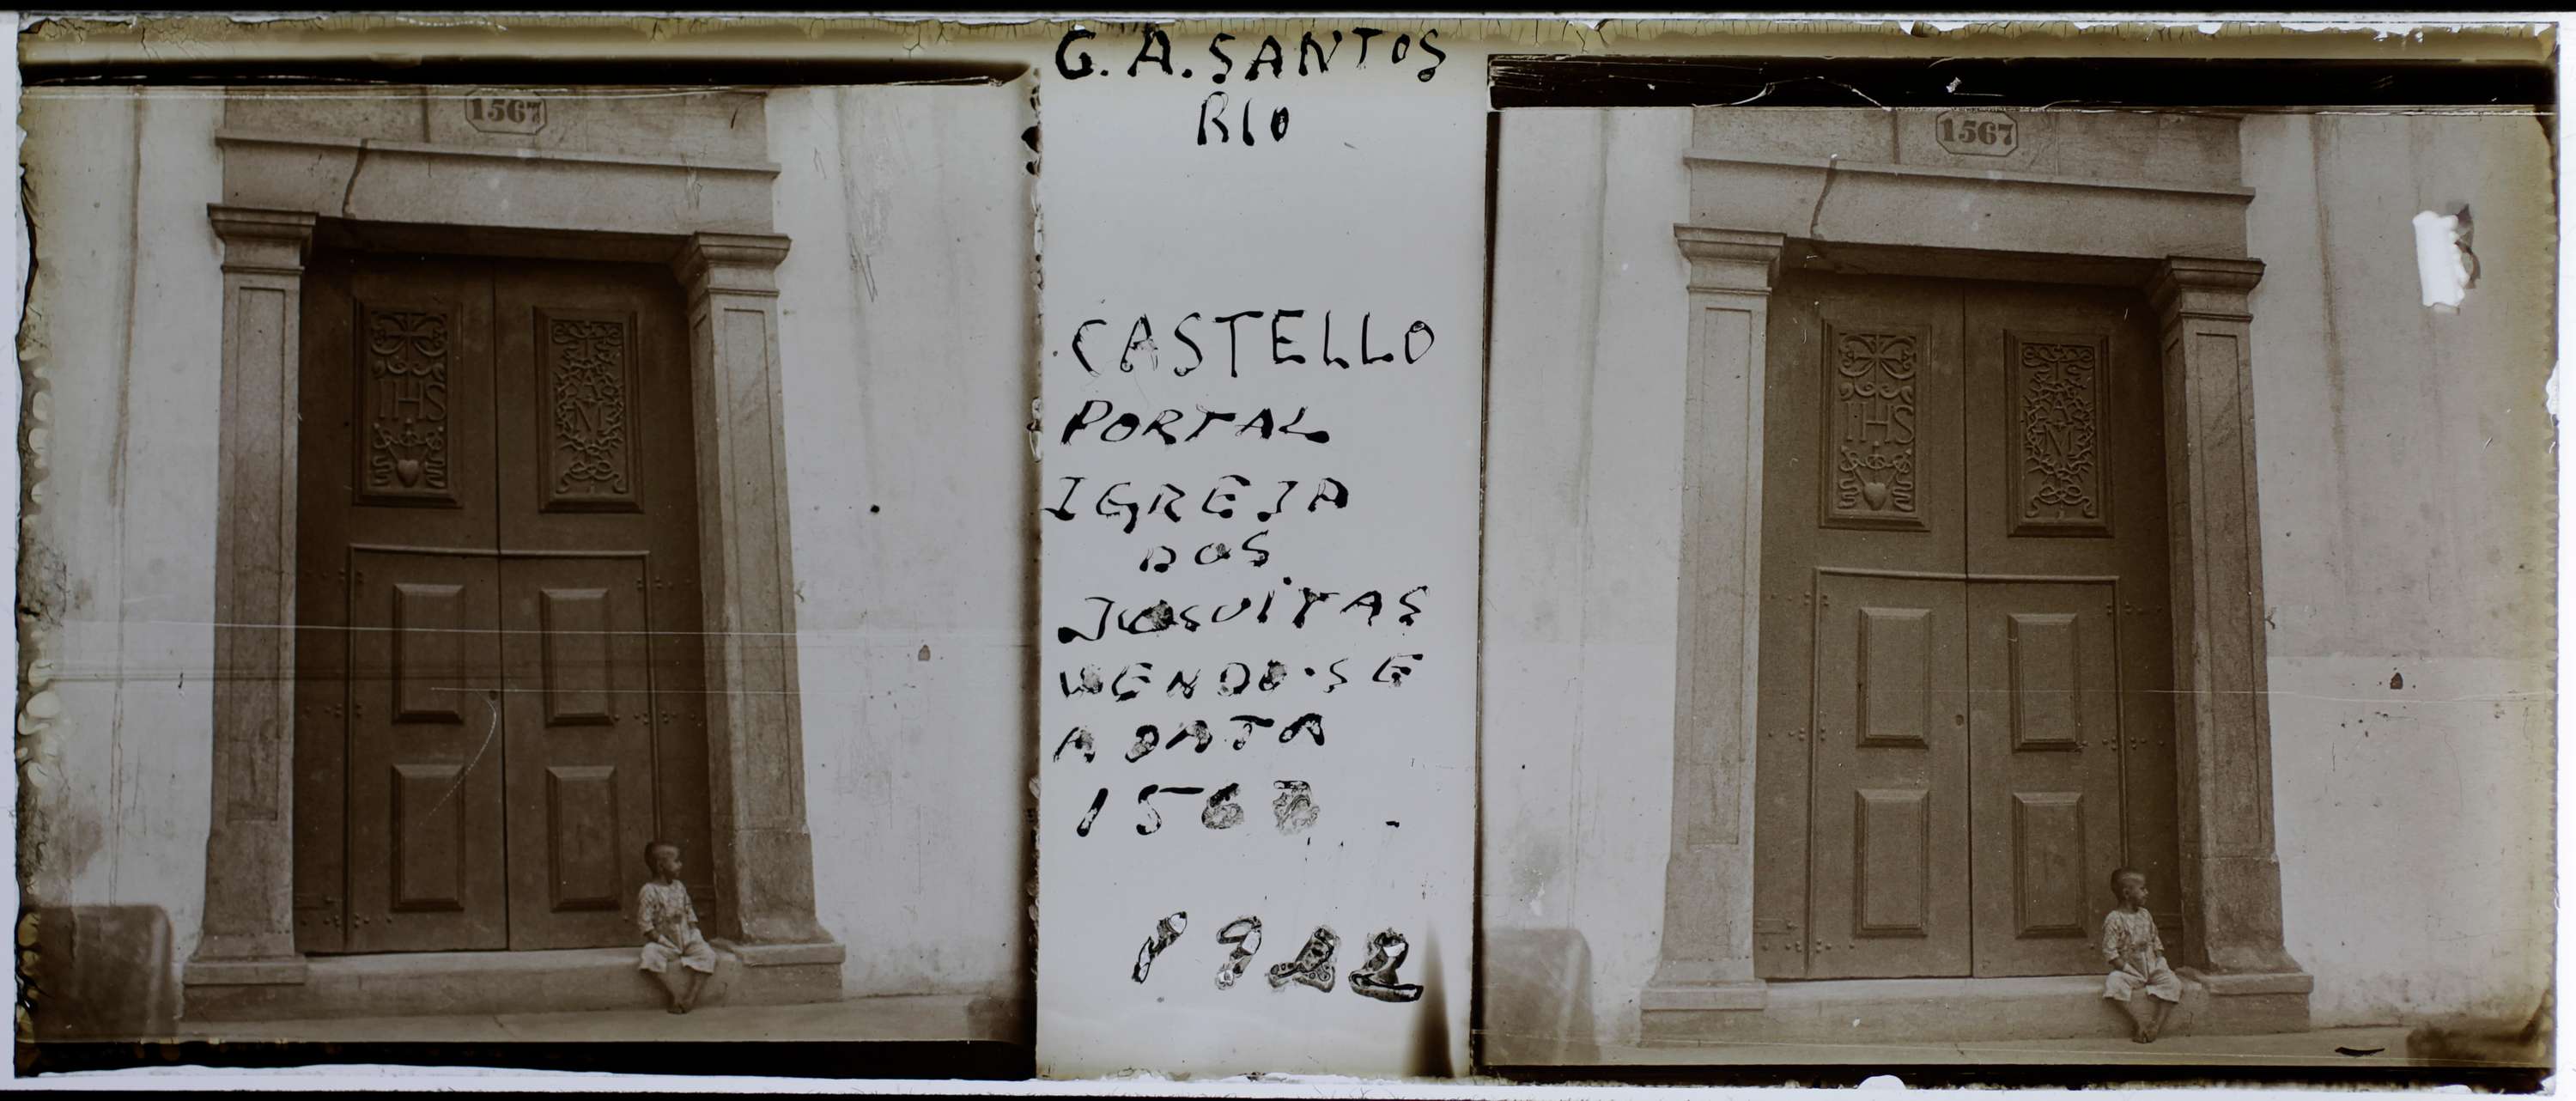 1567
IHS
G. A. SANTOS
RIO
CASTELLO
PORTAL
IGREJA
DOS
JESUITAS
VENDO-SE
A DATA
1567
1922
1567
IHS